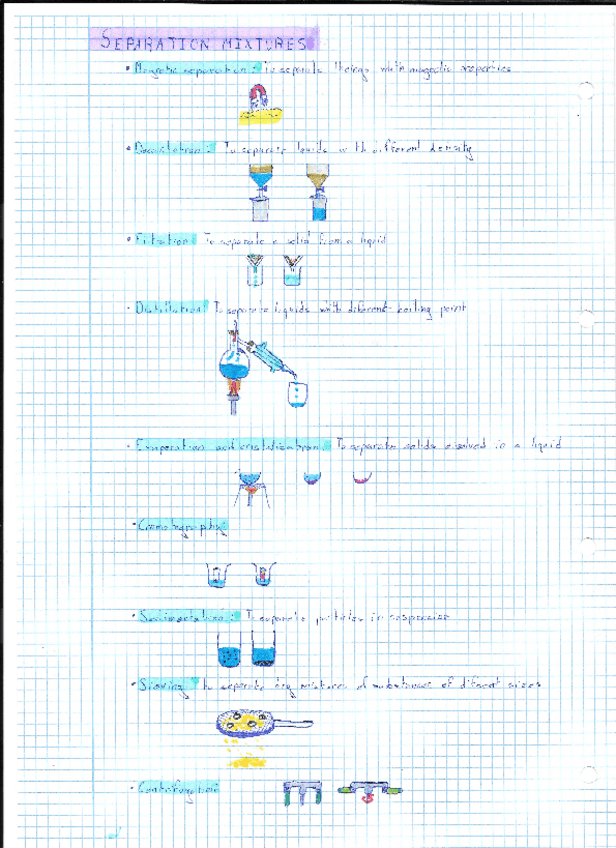 SEPARATION MIXTURES
• Magnetic separation: to separate things whith magnetic properties
• Decantation: To separate liquids with different density
• Filtration: To separate a solid from a liquid
• Distillation: To separate liquids with diferent boiling point
• Evaporation and cristalization: To separate solids disolved in a liquid
• Cromatography
• Sedimentation: To separate particles in suspension
• Sieving: to separate dry mixtures of substances of diferent sizes
• Centrifugation